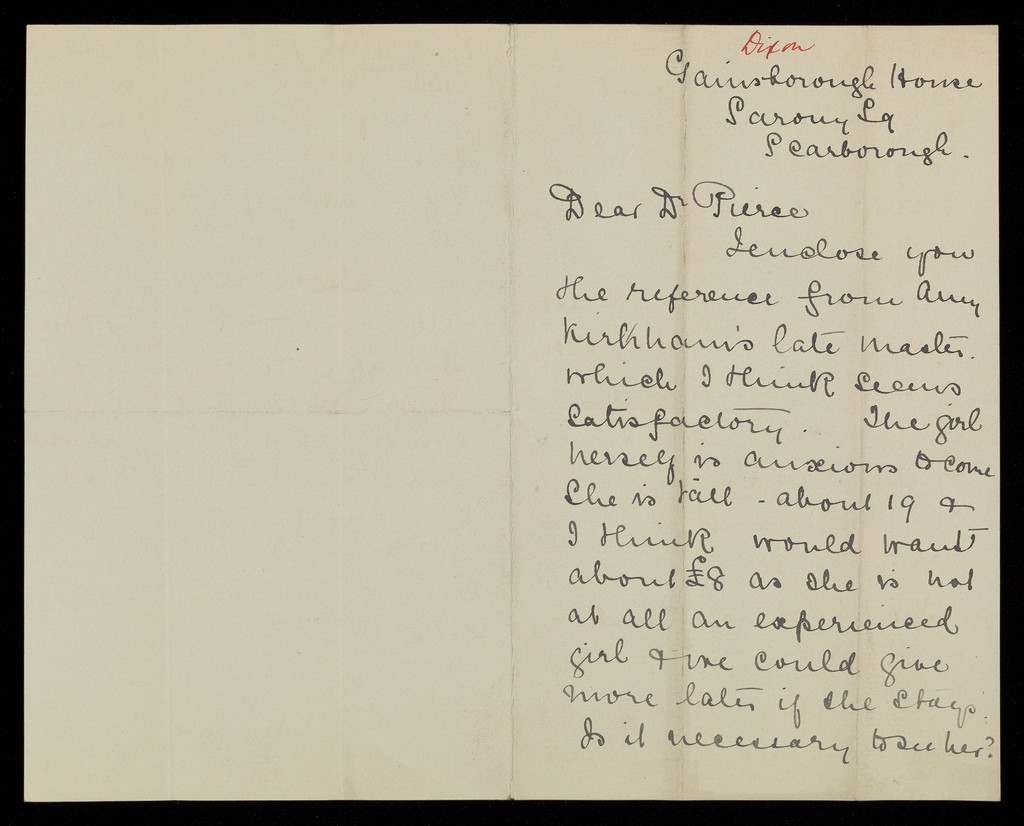 Dixon
Gainsborough House
Sarony Sq
Scarborough.
Dear Dr Pierce
I enclose you
the reference from Amy
Kirkham's late master.
which I think seems
satisfactory. The girl
herself is anxious to come
She is tall - about 19 &
I think would want
about £8 as she is not
at all an experienced
girl & we could give
more later if she stays.
Is it necessary to see her?